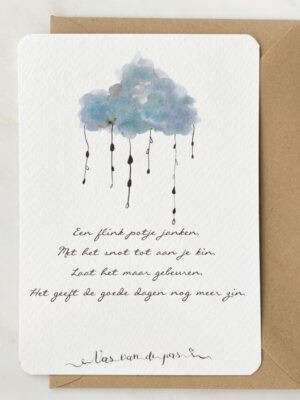 Een flink potje janken,
Met het snot tot aan je kin.
Laat het maar gebeuren,
Het geeft de goede dagen nog meer zin.
Vers van de pers